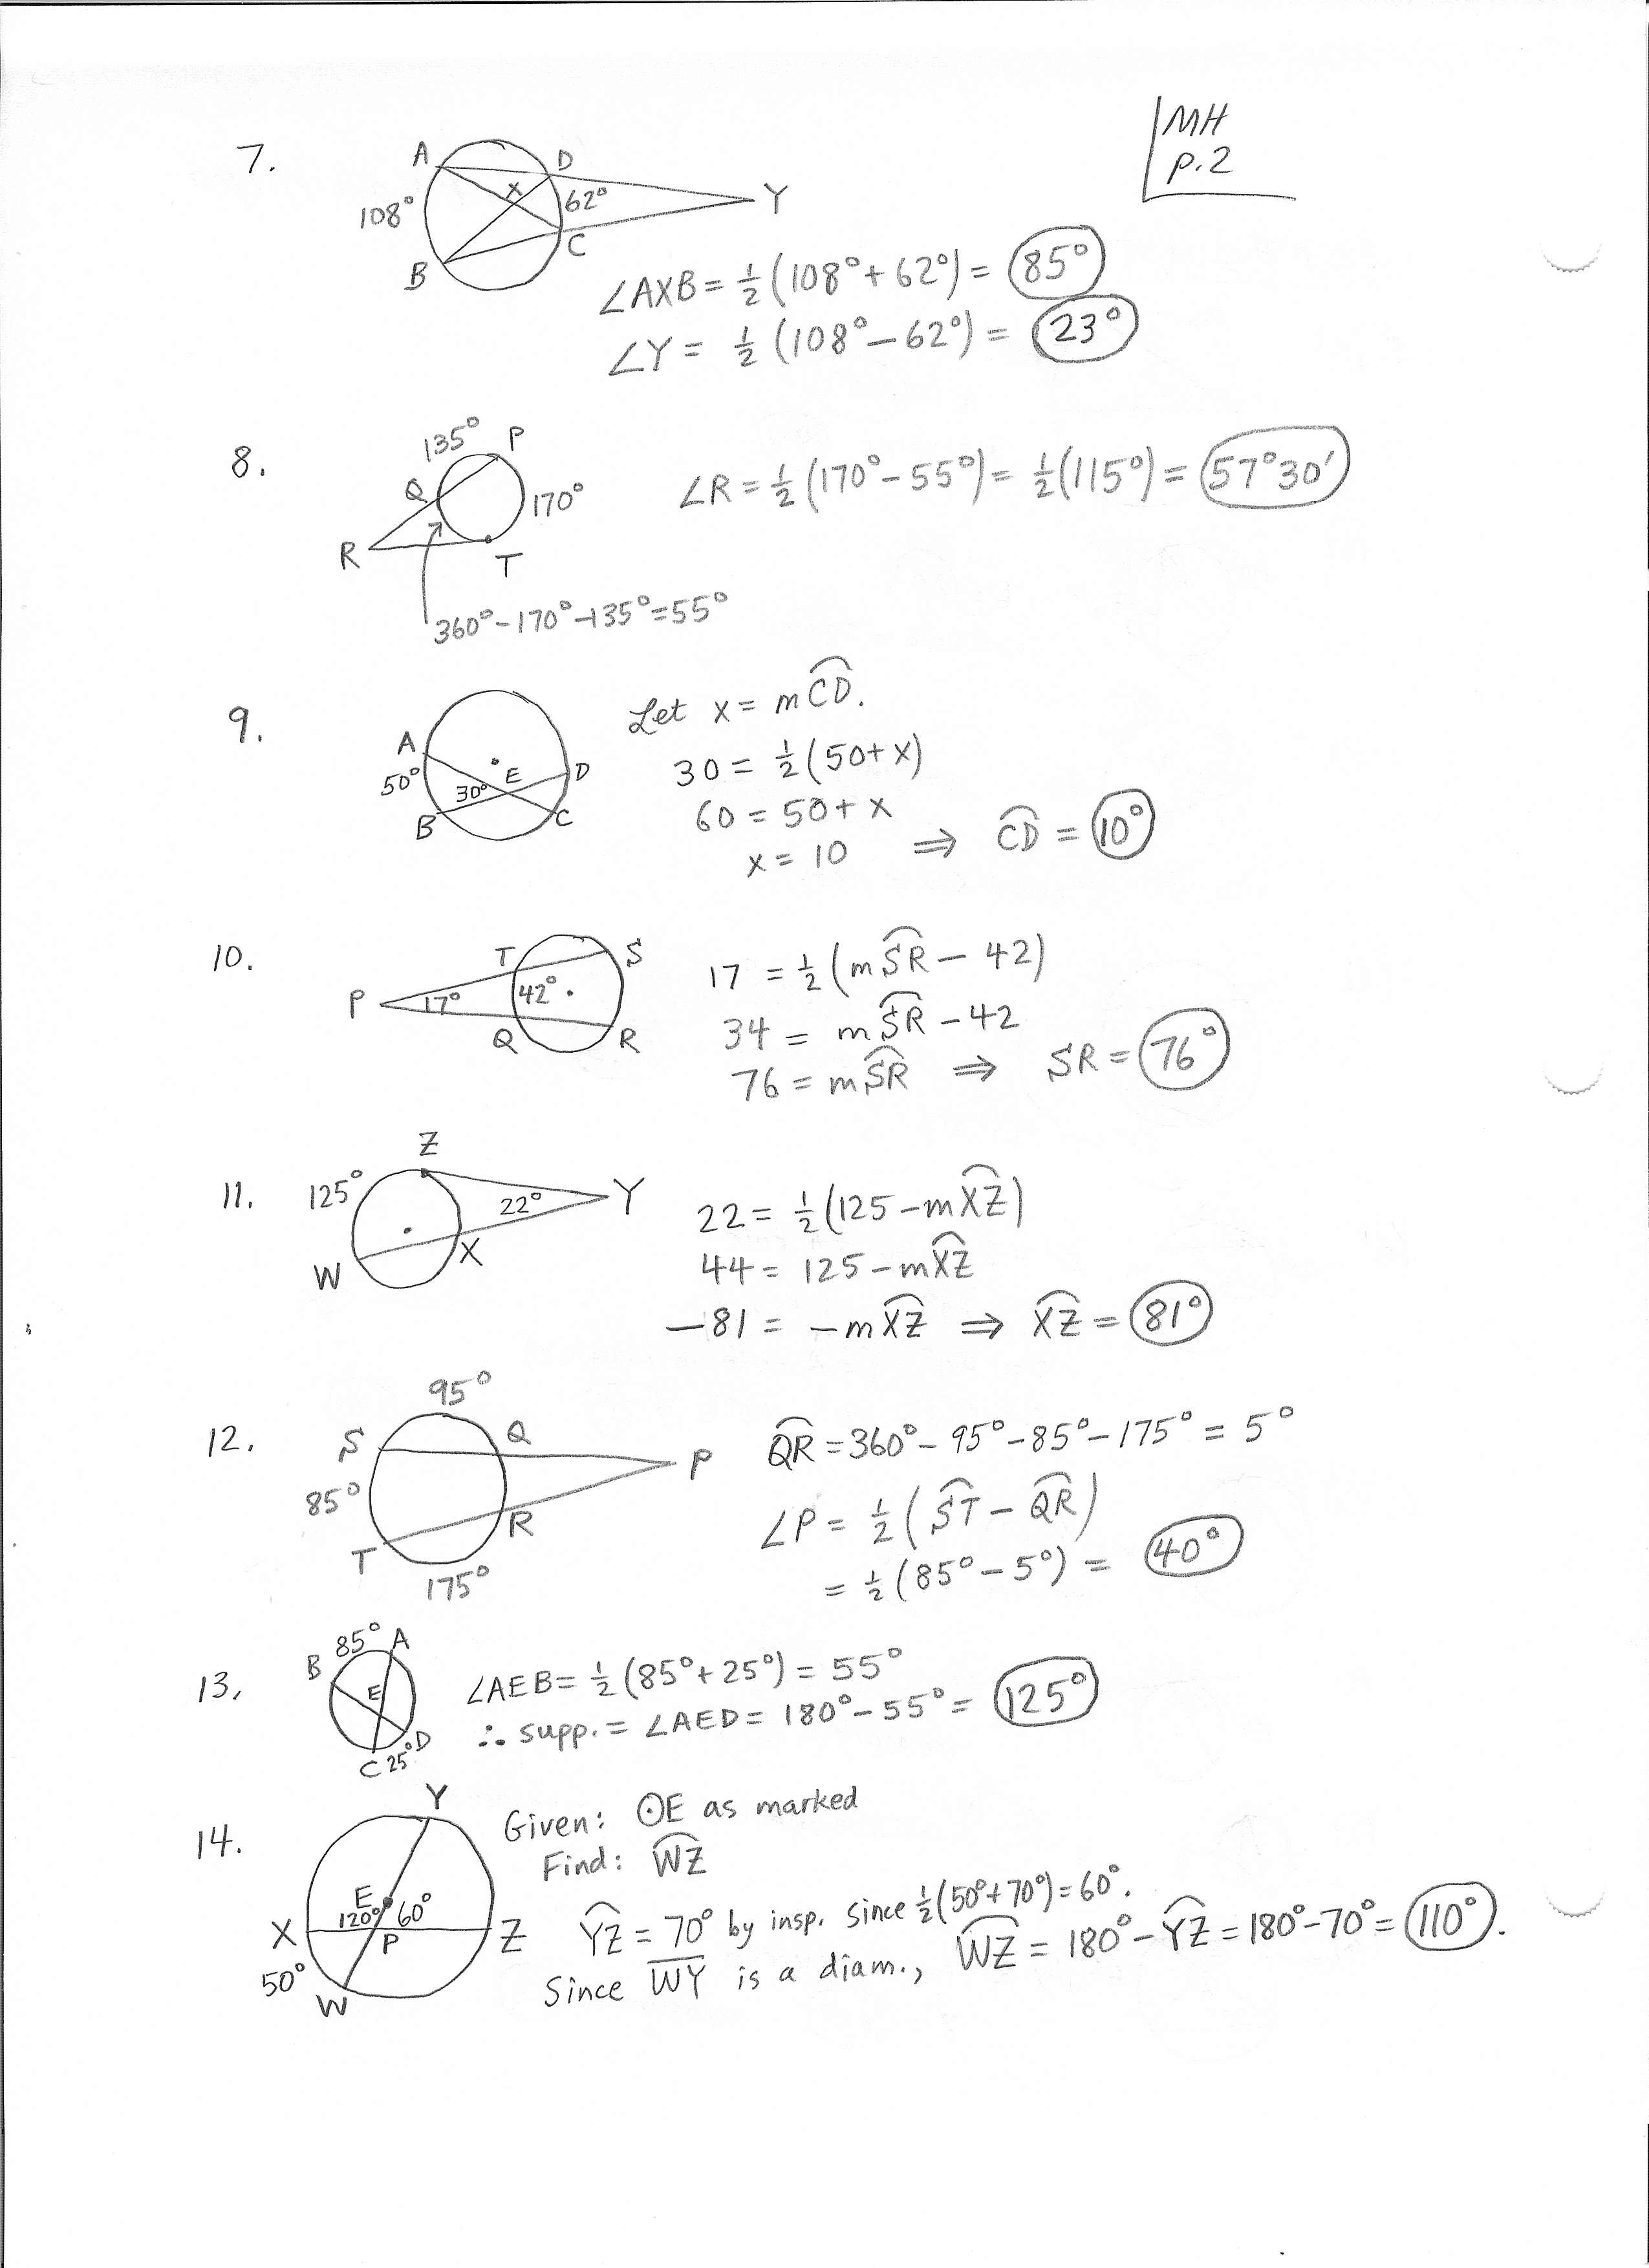 MH
p.2
7.
A
D
108°
X
62°
Y
B
C
∠AXB = ½(108° + 62°) = 85°
∠Y = ½(108° − 62°) = 23°
8.
135°
P
Q
170°
R
T
360° − 170° − 135° = 55°
∠R = ½(170° − 55°) = ½(115°) = 57°30′
9.
A
50°
30°
E
D
B
C
Let x = m⌢CD.
30 = ½(50 + x)
60 = 50 + x
x = 10 ⇒ ⌢CD = 10°
10.
T
S
P
17°
42°
Q
R
17 = ½(m⌢SR − 42)
34 = m⌢SR − 42
76 = m⌢SR ⇒ SR = 76°
11.
Z
125°
22°
Y
W
X
22 = ½(125 − m⌢XZ)
44 = 125 − m⌢XZ
−81 = −m⌢XZ ⇒ ⌢XZ = 81°
12.
95°
S
Q
P
85°
R
T
175°
⌢QR = 360° − 95° − 85° − 175° = 5°
∠P = ½(⌢ST − ⌢QR)
= ½(85° − 5°) = 40°
13.
85°
A
B
E
D
C
25°
∠AEB = ½(85° + 25°) = 55°
∴ supp. = ∠AED = 180° − 55° = 125°
14.
Y
E
120°
60°
X
P
Z
50°
W
Given: ⊙E as marked
Find: ⌢WZ
⌢YZ = 70° by insp. since ½(50° + 70°) = 60°.
Since W̅Y̅ is a diam., ⌢WZ = 180° − ⌢YZ = 180° − 70° = 110°.